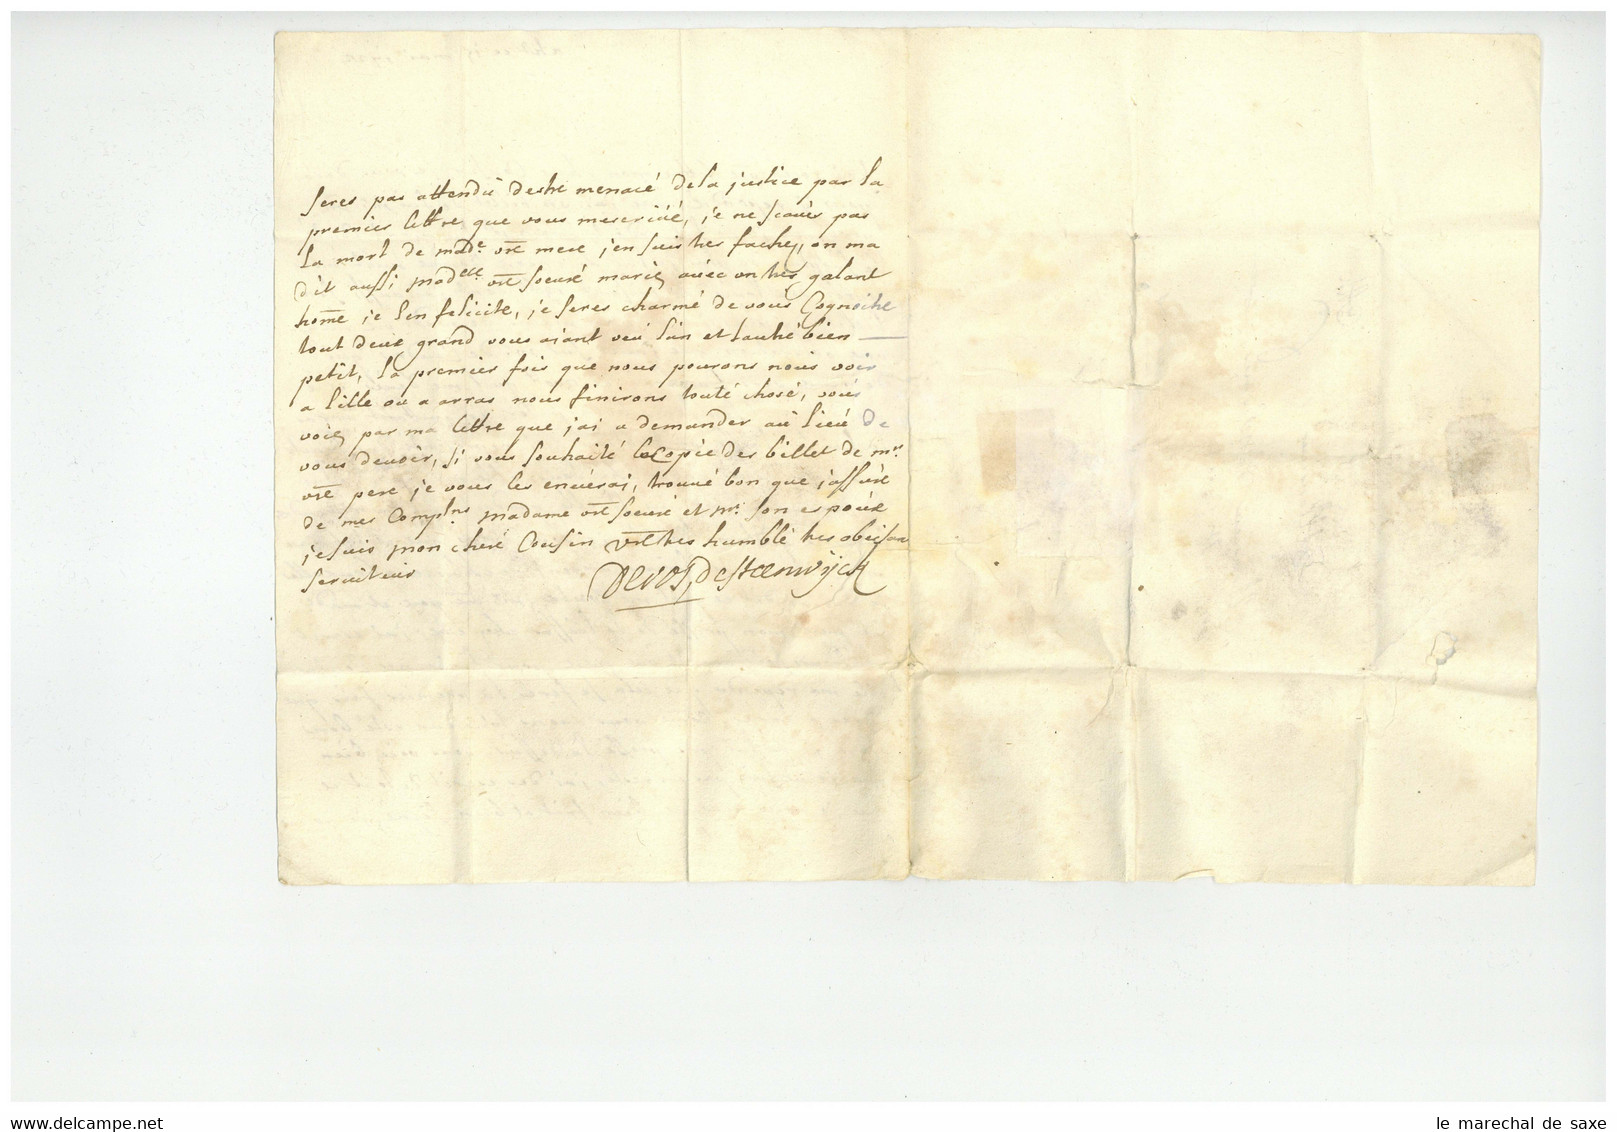 seres pas attendu destre menacé de la justice par la
premier lettre que vous mescrivé, je ne scavès pas
la mort de made. vre mere j'en suis tres fachez, on ma
dit aussi madelle. vre soeure mariez avec un tres galant
home je l'en felicite, je seres charmé de vous Cognoitre
tout deux grand vous aiant veu l'un et lautre bien
petit, la premier fois que nous pourons nous voir
a lille ou a arras nous finirons toute chose, vous
voiez par ma lettre que j'ai a demander au lieu de
vous devoir, si vous souhaité la Copie des billet de mr.
vre pere je vous les enverai, trouvé bon que j'assure
de mes Complns madame vre soeure et mr. son espoux
je suis mon cher Cousin vre tres humble tres obeisan
serviteur
Devos, de steenwijck
le marechal de saxe